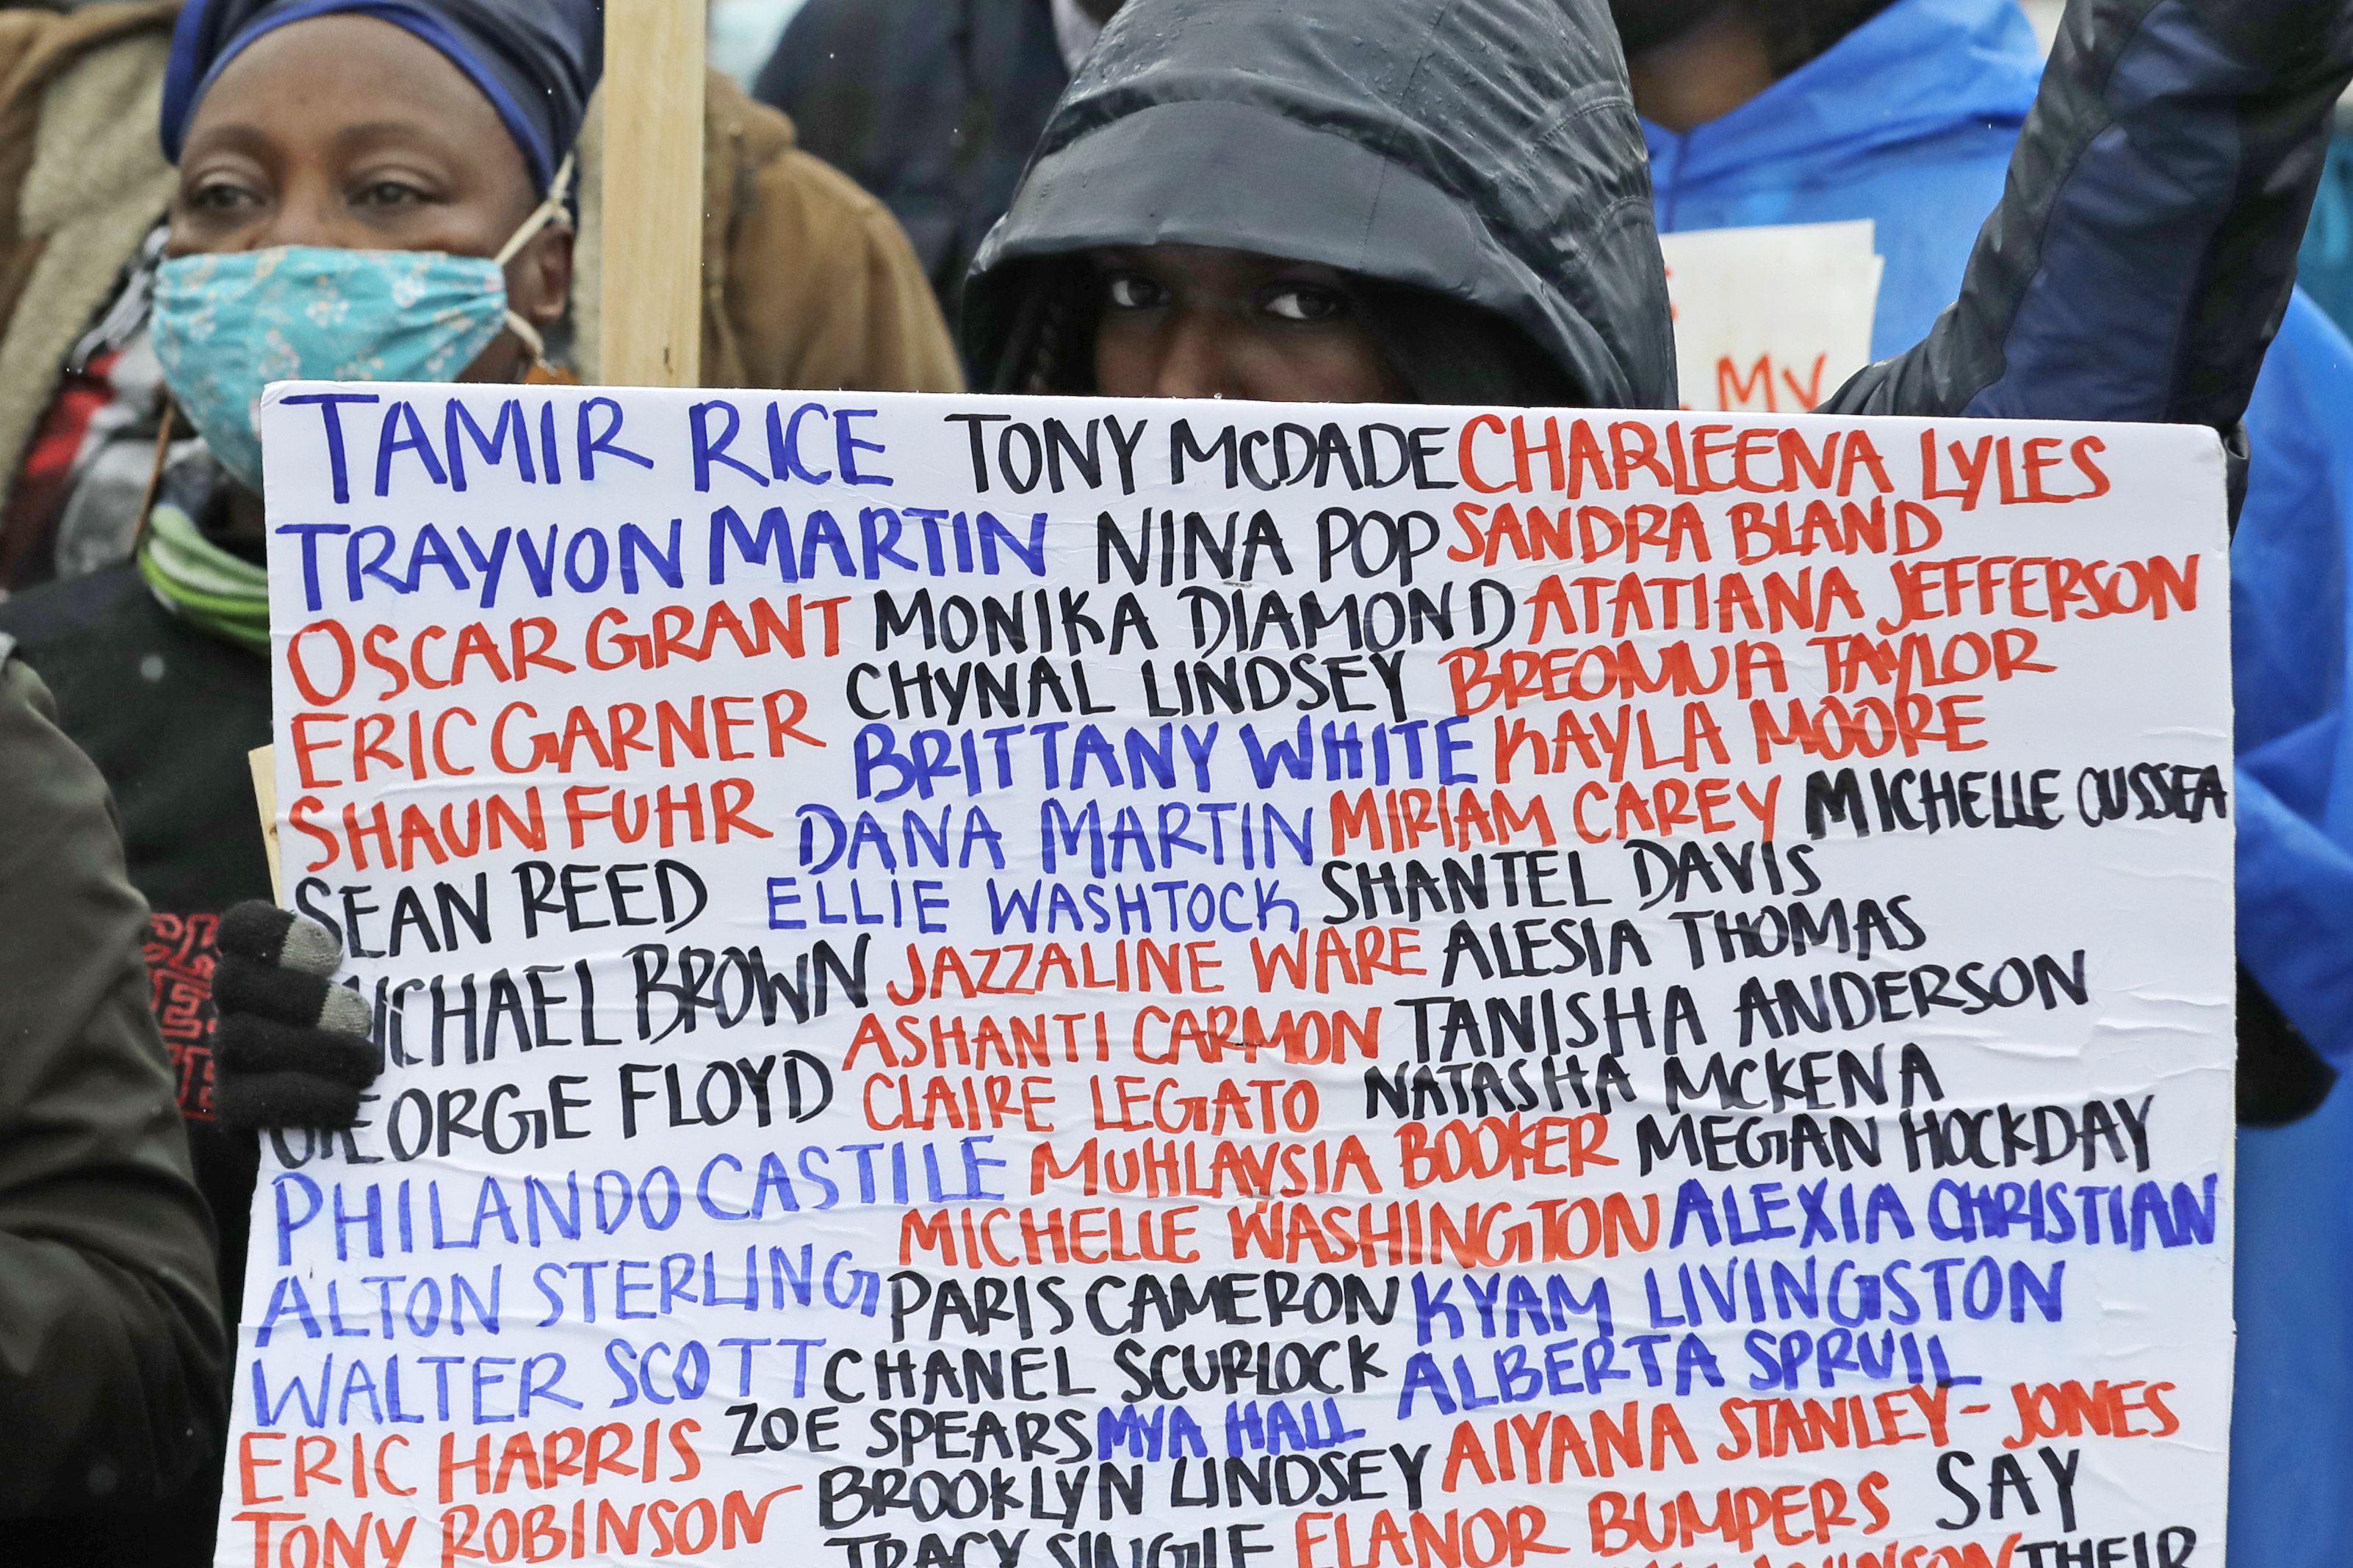 MY
TAMIR RICE TONY MCDADE CHARLEENA LYLES
TRAYVON MARTIN NINA POP SANDRA BLAND
OSCAR GRANT MONIKA DIAMOND ATATIANA JEFFERSON
ERIC GARNER CHYNAL LINDSEY BREONNA TAYLOR
SHAUN FUHR BRITTANY WHITE KAYLA MOORE
DANA MARTIN MIRIAM CAREY MICHELLE CUSSEA
SEAN REED ELLIE WASHTOCK SHANTEL DAVIS
MICHAEL BROWN JAZZALINE WARE ALESIA THOMAS
GEORGE FLOYD ASHANTI CARMON TANISHA ANDERSON
CLAIRE LEGATO NATASHA MCKENA
PHILANDO CASTILE MUHLAYSIA BOOKER MEGAN HOCKDAY
ALTON STERLING MICHELLE WASHINGTON ALEXIA CHRISTIAN
PARIS CAMERON KYAM LIVINGSTON
WALTER SCOTT CHANEL SCURLOCK ALBERTA SPRUIL
ERIC HARRIS ZOE SPEARS MYA HALL AIYANA STANLEY-JONES
TONY ROBINSON BROOKLYN LINDSEY ELANOR BUMPERS SAY
TRACY SINGLE THEIR